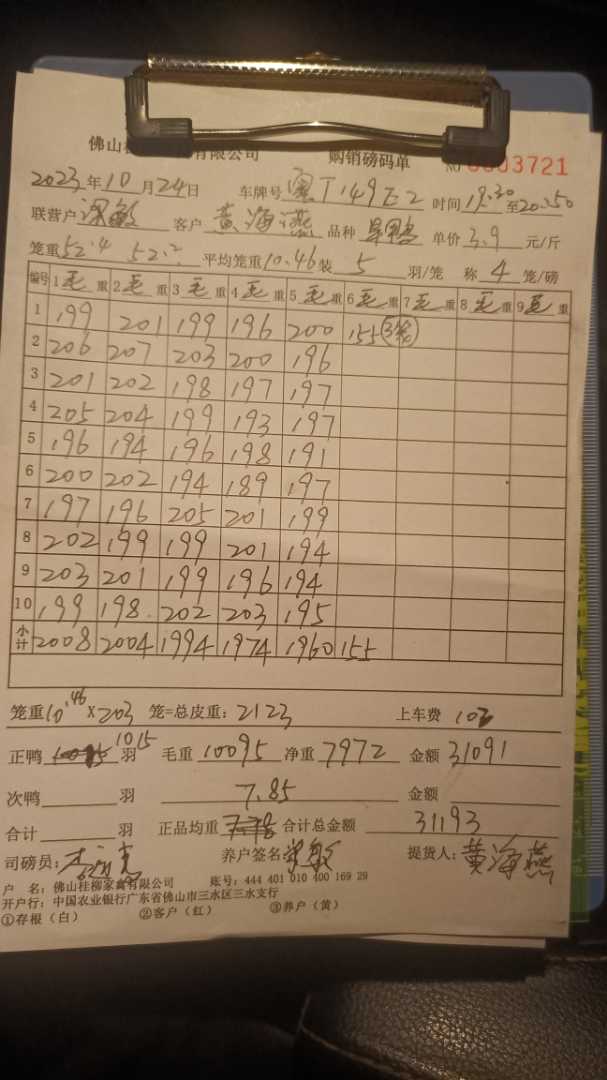 佛山桂 有限公司 购销磅码单 NO 0003721
2023年10月24日 车牌号 T149E2 时间19:30至20:50
联营户 深敏 客户 黄海燕 品种 单价 3.9 元/斤
笼重52.4 52.2 平均笼重10.46装 5 羽/笼 称 4 笼/磅
编号 1毛重 2毛重 3毛重 4毛重 5毛重 6毛重 7毛重 8毛重 9毛重
1 199 201 199 196 200 155(3笼)
2 206 207 203 200 196
3 201 202 198 197 197
4 205 204 199 193 197
5 196 194 196 198 191
6 200 202 194 189 197
7 197 196 205 201 199
8 202 199 199 201 194
9 203 201 199 196 194
10 199 198 202 203 195
小计 2008 2004 1994 1974 1960 155
笼重10.46×203 笼=总皮重:2123 上车费 102
正鸭 1015 羽 毛重 10095 净重 7972 金额 31091
次鸭 羽 7.85 金额
合计 羽 正品均重 合计总金额 31193
司磅员: 养户签名: 敏 提货人:黄海燕
户 名:佛山桂柳家禽有限公司 账号:444 401 010 400 169 29
开户行:中国农业银行广东省佛山市三水区三水支行
①存根(白) ②客户(红) ③养户(黄)